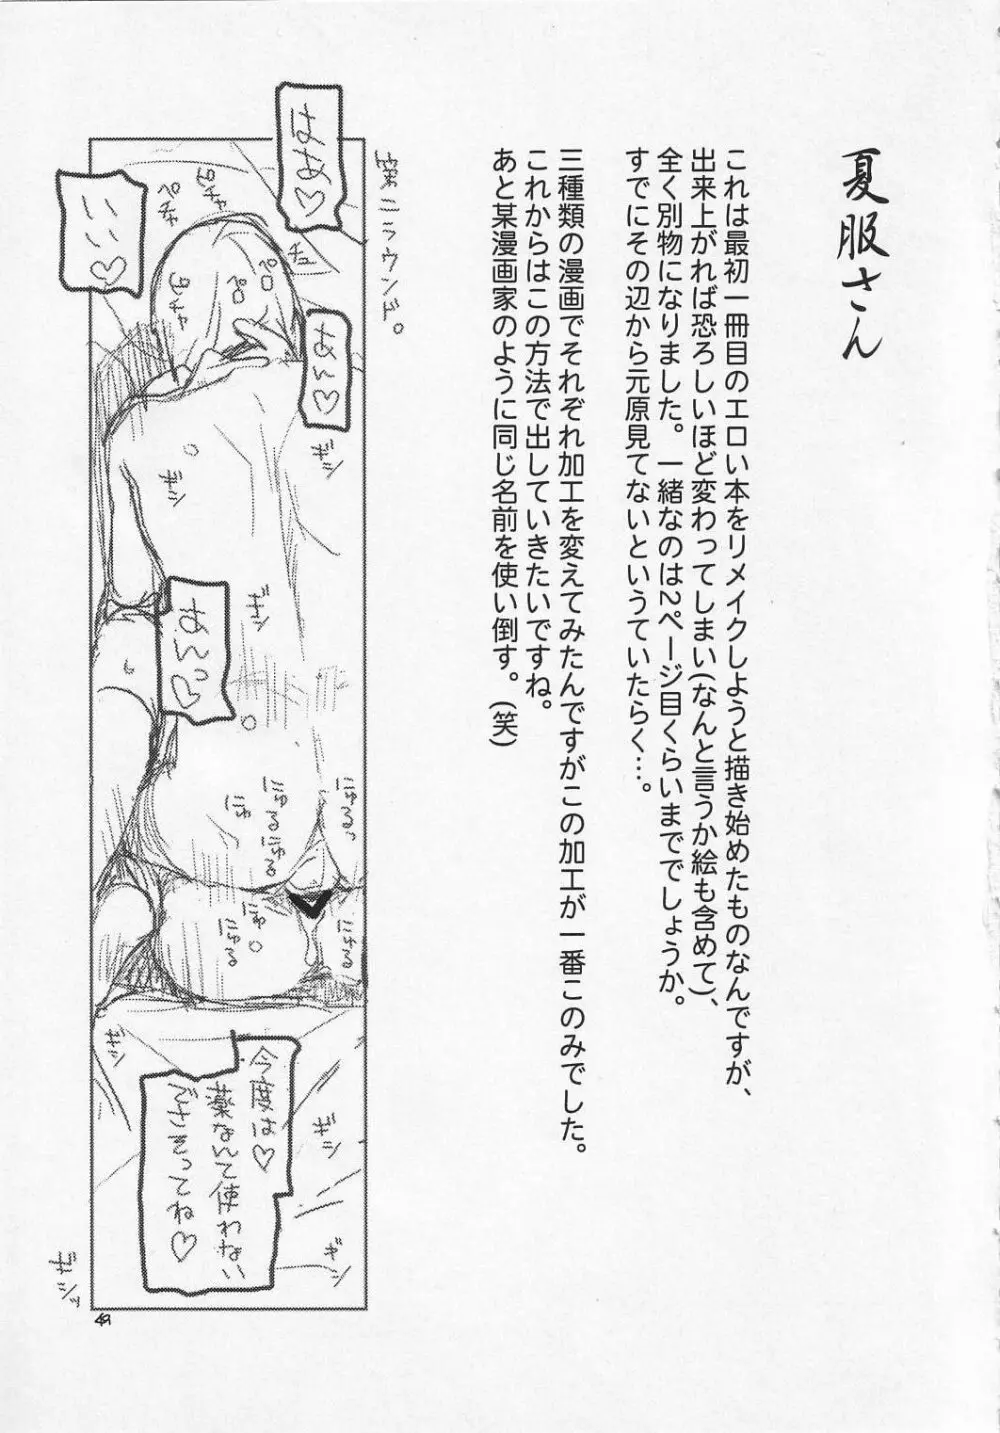 夏服さん
これは最初一冊目のエロい本をリメイクしようと描き始めたものなんですが、
出来上がれば恐ろしいほど変わってしまい(なんと言うか絵も含めて)、
全く別物になりました。一緒なのは2ページ目くらいまででしょうか。
すでにその辺から元原見てないというていたらく…。
三種類の漫画でそれぞれ加工を変えてみたんですがこの加工が一番このみでした。
これからはこの方法で出していきたいですね。
あと某漫画家のように同じ名前を使い倒す。(笑)
第二ラウンド。
はあ♡
いい♡
あん♡
あんっ♡
ピチャ
ペチャ
チュ
ペロ
ペロ
ギシ
ギシ
ギシ
にゅる
にゅる
にゅる
にゅ
にゅ
にゅる
にゅる
今度は♡
薬なんて使わない
でさそってね♡
ギシ
ギシ
ギシ
ギシッ
49